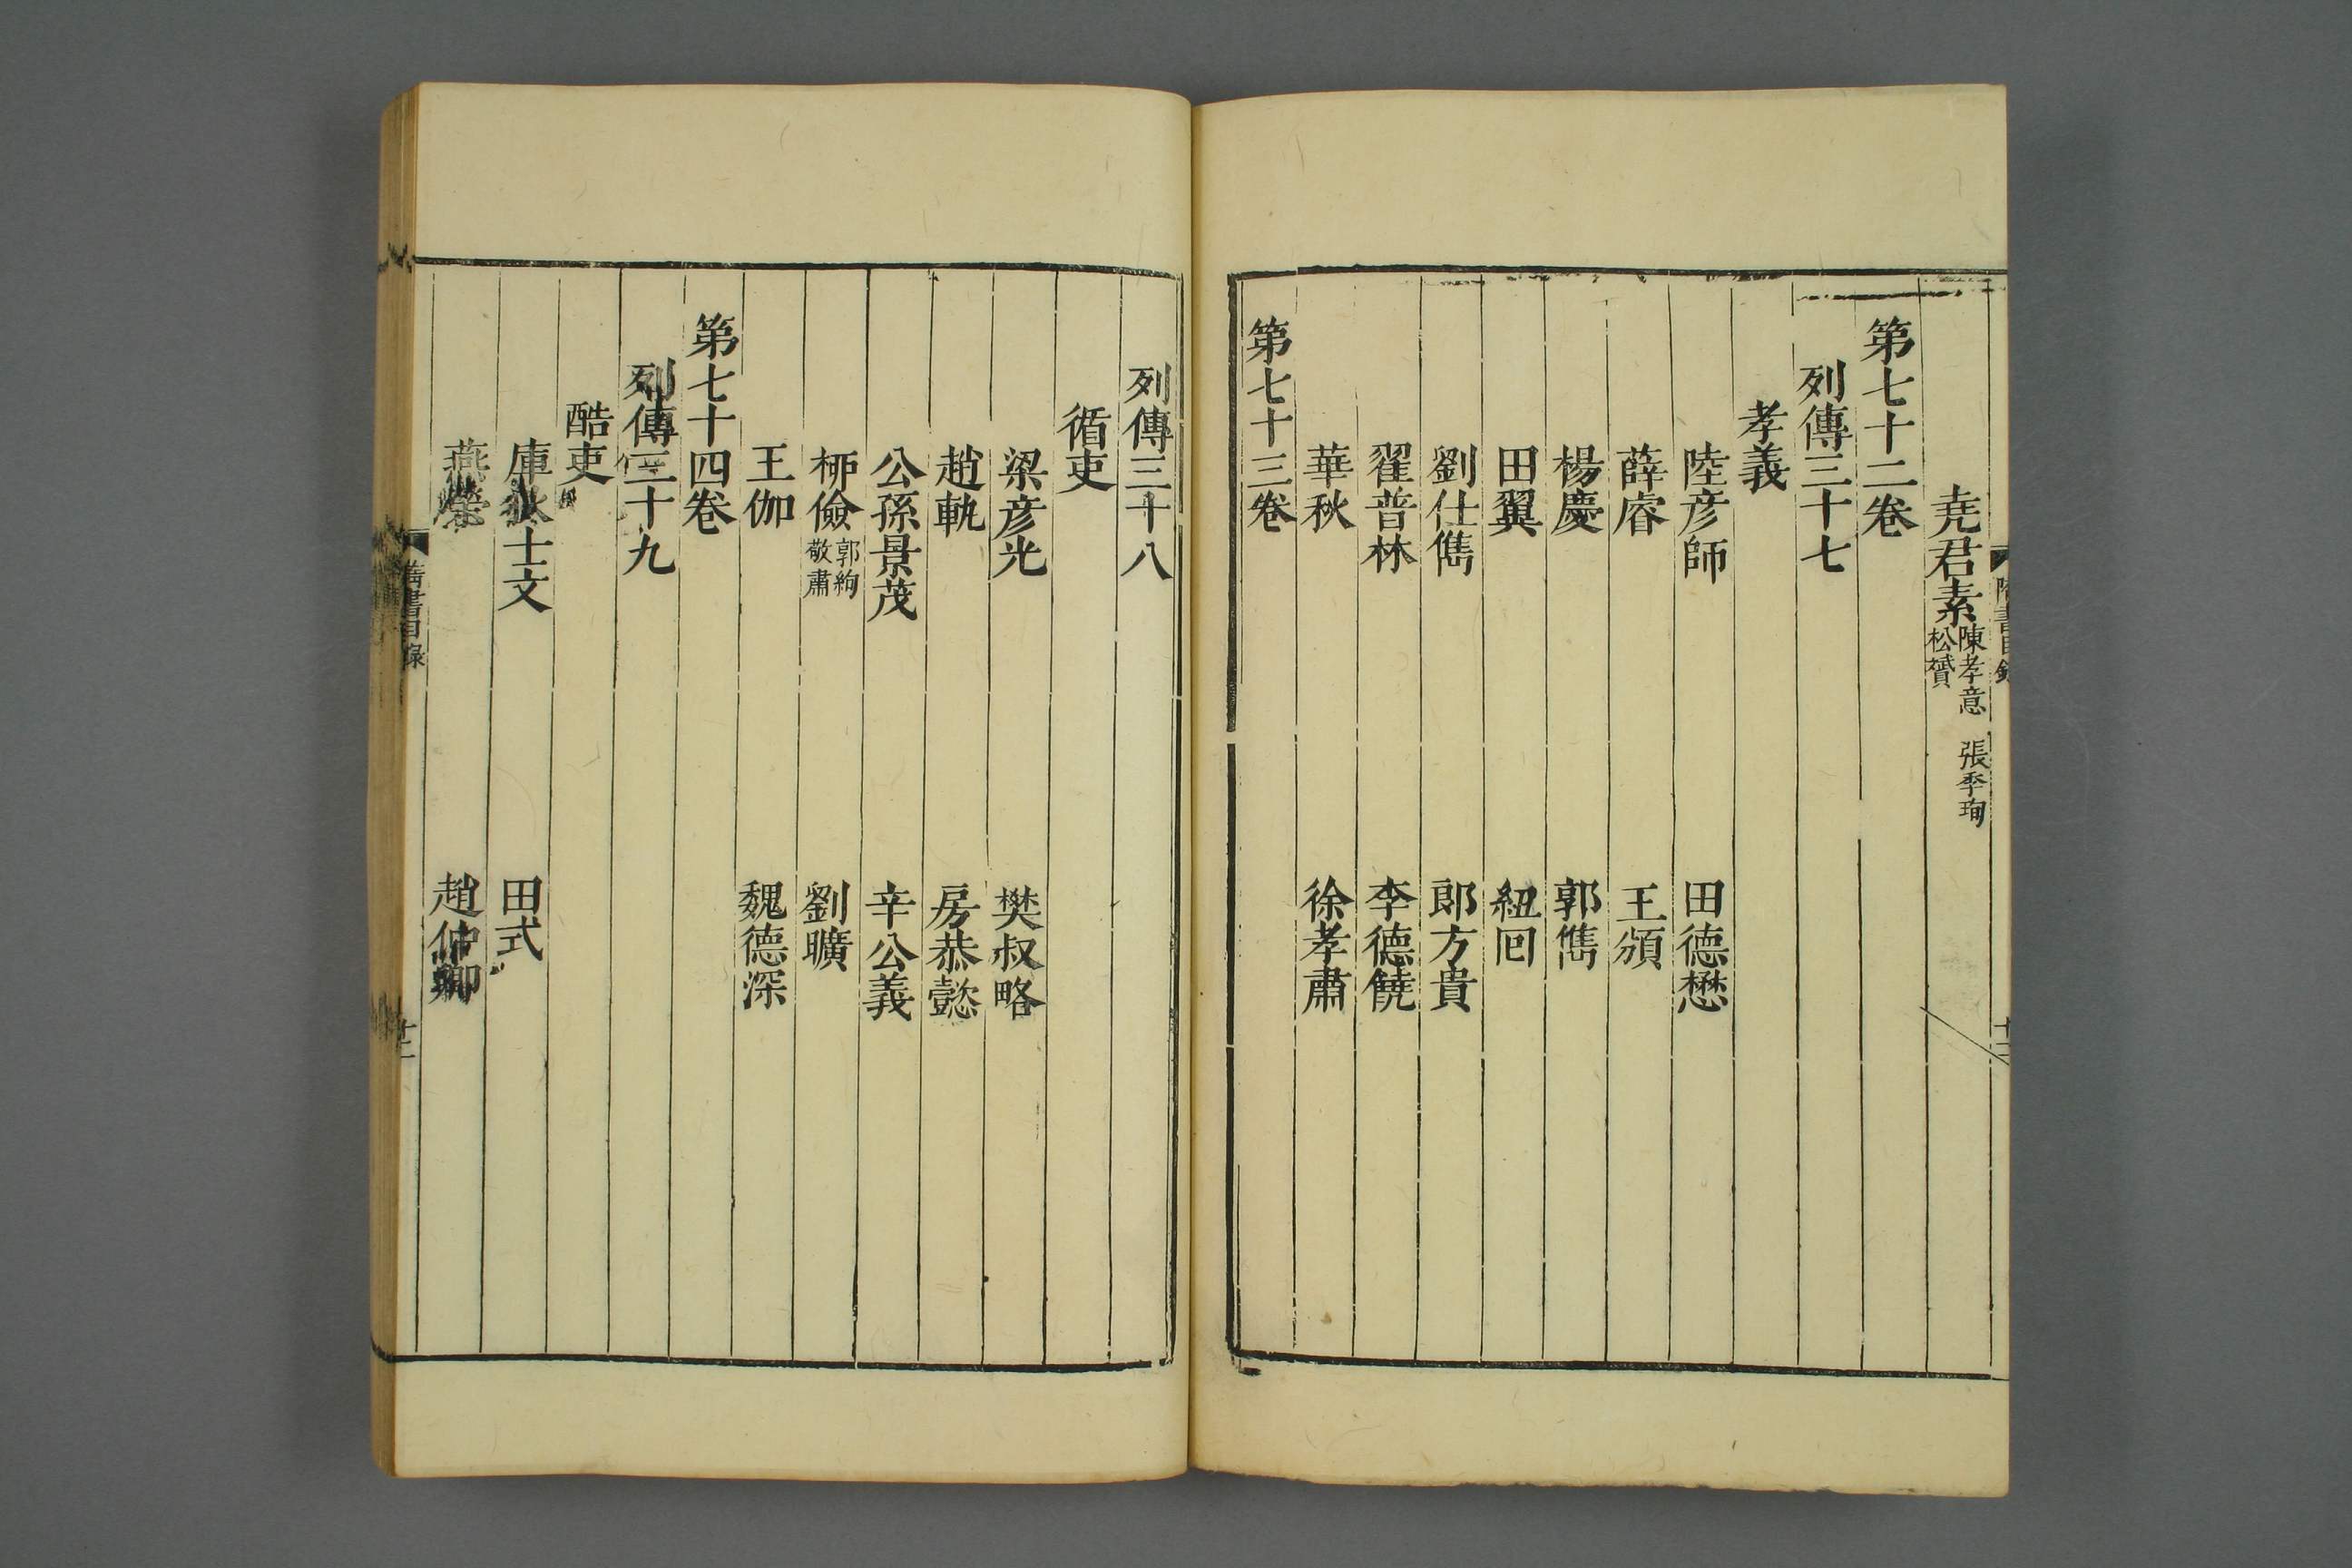 堯君素 陳孝意 張季珣 松贇
第七十二卷
列傳三十七
孝義
陸彦師 田德懋
薛睿 王頒
楊慶 郭儁
田翼 紐囘
劉仕儁 郎方貴
翟普林 李德饒
華秋 徐孝肅
第七十三卷
列傳三十八
循吏
梁彦光 樊叔略
趙軌 房恭懿
公孫景茂 辛公義
栁儉 郭絢 敬肅 劉曠
王伽 魏德深
第七十四卷
列傳三十九
酷吏
庫狄士文 田式
燕榮 趙仲卿
隋書目錄